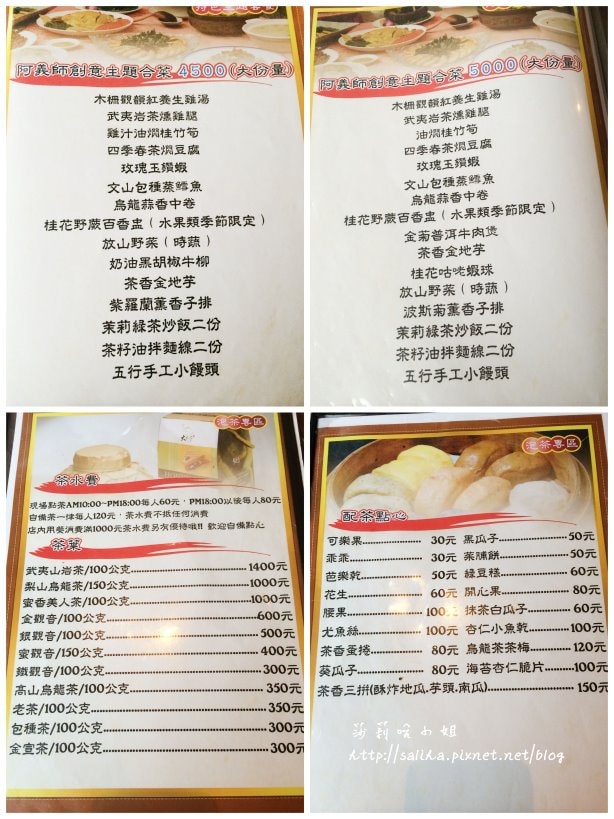 特色主題套餐
阿義師創意主題合菜 4500(大份量)
木柵觀韻紅養生雞湯
武夷岩茶燻雞腿
雞汁油燜桂竹筍
四季春茶燜豆腐
玫瑰玉鑽蝦
文山包種蒸鱈魚
烏龍蒜香中卷
桂花野蕨百香盅（水果類季節限定）
放山野菜（時蔬）
奶油黑胡椒牛柳
茶香金地芋
紫羅蘭薰香子排
茉莉綠茶炒飯二份
茶籽油拌麵線二份
五行手工小饅頭
阿義師創意主題合菜 5000(大份量)
木柵觀韻紅養生雞湯
武夷岩茶燻雞腿
油燜桂竹筍
四季春茶燜豆腐
玫瑰玉鑽蝦
文山包種蒸鱈魚
烏龍蒜香中卷
桂花野蕨百香盅（水果類季節限定）
金菊普洱牛肉煲
茶香金地芋
桂花咕咾蝦球
放山野菜（時蔬）
波斯菊薰香子排
茉莉綠茶炒飯二份
茶籽油拌麵線二份
五行手工小饅頭
泡茶專區
茶水費
現場點茶AM10:00~PM18:00每人60元，PM18:00以後每人80元
自備茶一律每人120元，茶水費不抵任何消費
店內用餐消費滿1000元茶水費另有優待哦!! 歡迎自備點心
茶葉
武夷山岩茶/100公克 1400元
梨山烏龍茶/150公克 1000元
蜜香美人茶/100公克 1000元
金觀音/100公克 600元
銀觀音/100公克 500元
蜜觀音/150公克 400元
鐵觀音/100公克 300元
高山烏龍茶/100公克 350元
老茶/100公克 350元
包種茶/100公克 300元
金宣茶/100公克 300元
泡茶專區
配茶點心
可樂果 30元 黑瓜子 50元
乖乖 30元 茶脯餅 50元
芭樂乾 50元 綠豆糕 60元
花生 60元 開心果 80元
腰果 100元 抹茶白瓜子 60元
尤魚絲 100元 杏仁小魚乾 100元
茶香蛋捲 80元 烏龍茶茶梅 120元
葵瓜子 80元 海苔杏仁脆片 100元
茶香三拼(酥炸地瓜,芋頭,南瓜) 150元
莎莉哈小姐
http://saliha.pixnet.net/blog